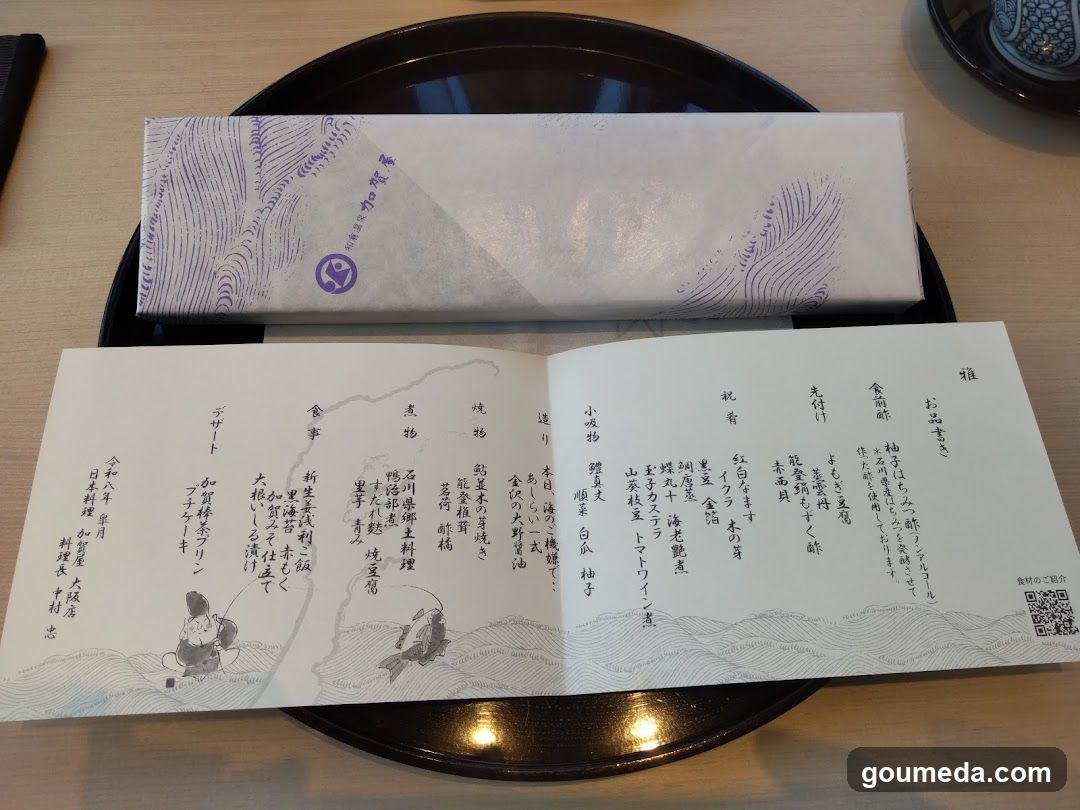 和倉温泉 加賀屋
雅
お品書き
食前酢
柚子はちみつ酢(ノンアルコール)
※石川県産はちみつを発酵させて
作った酢を使用しております。
先付け
よもぎ豆腐
蒸雲丹
能登絹もずく酢
赤西貝
祝肴
紅白なます
イクラ 木の芽
黒豆 金箔
鯛唐蒸
蝶丸十 海老艶煮
玉子カステラ
山葵枝豆 トマトワイン煮
小吸物
鱧真丈
順菜 白瓜 柚子
造り
本日、海のご機嫌で・・
あしらい一式
金沢の大野醤油
焼物
鮎並木の芽焼き
能登椎茸
茗荷 酢橘
煮物
石川県郷土料理
鴨治部煮
すだれ麩 焼豆腐
里芋 青み
食事
新生姜浅利ご飯
黒海苔 赤もく
加賀みそ仕立て
大根いしる漬け
デザート
加賀棒茶プリン
プチケーキ
令和八年 皐月
日本料理 加賀屋 大阪店
料理長 中村 忠
食材のご紹介
goumeda.com